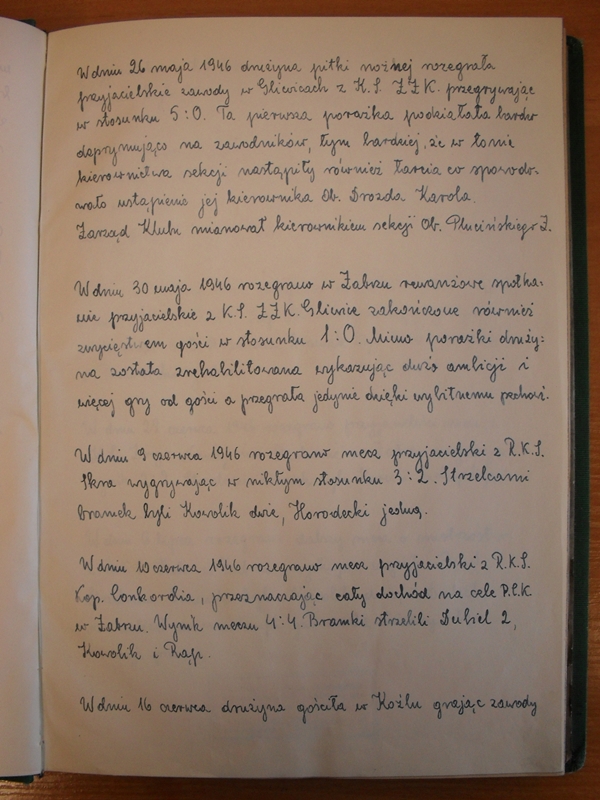 W dniu 26 maja 1946 drużyna piłki nożnej rozegrała
przyjacielskie zawody w Gliwicach z K.S. Z.Z.K. przegrywając
w stosunku 5:0. Ta pierwsza porażka podziałała bardzo
deprymująco na zawodników, tym bardziej, że w łonie
kierownictwa sekcji nastąpiły również tarcia co spowodo-
wało ustąpienie jej kierownika Ob. Drozda Karola.
Zarząd Klubu mianował kierownikiem sekcji Ob. Plucińskiego Z.
W dniu 30 maja 1946 rozegrano w Zabrzu rewanżowe spotka-
nie przyjacielskie z K.S. Z.Z.K. Gliwice zakończone również
zwycięstwem gości w stosunku 1:0. Mimo porażki druży-
na została zrehabilitowana wykazując dużo ambicji i
więcej gry od gości a przegrała jedynie dzięki wybitnemu pechowi.
W dniu 9 czerwca 1946 rozegrano mecz przyjacielski z R.K.S.
Skra wygrywając w nikłym stosunku 3:2. Strzelcami
bramek byli Kowolik dwie, Horodecki jedną.
W dniu 10 czerwca 1946 rozegrano mecz przyjacielski z R.K.S.
Kop. Conkordia, przeznaczając cały dochód na cele P.C.K.
w Zabrzu. Wynik meczu 4:4. Bramki strzelili Dubiel 2,
Kowolik i Rąp.
W dniu 16 czerwca drużyna gościła w Koźlu grając zawody